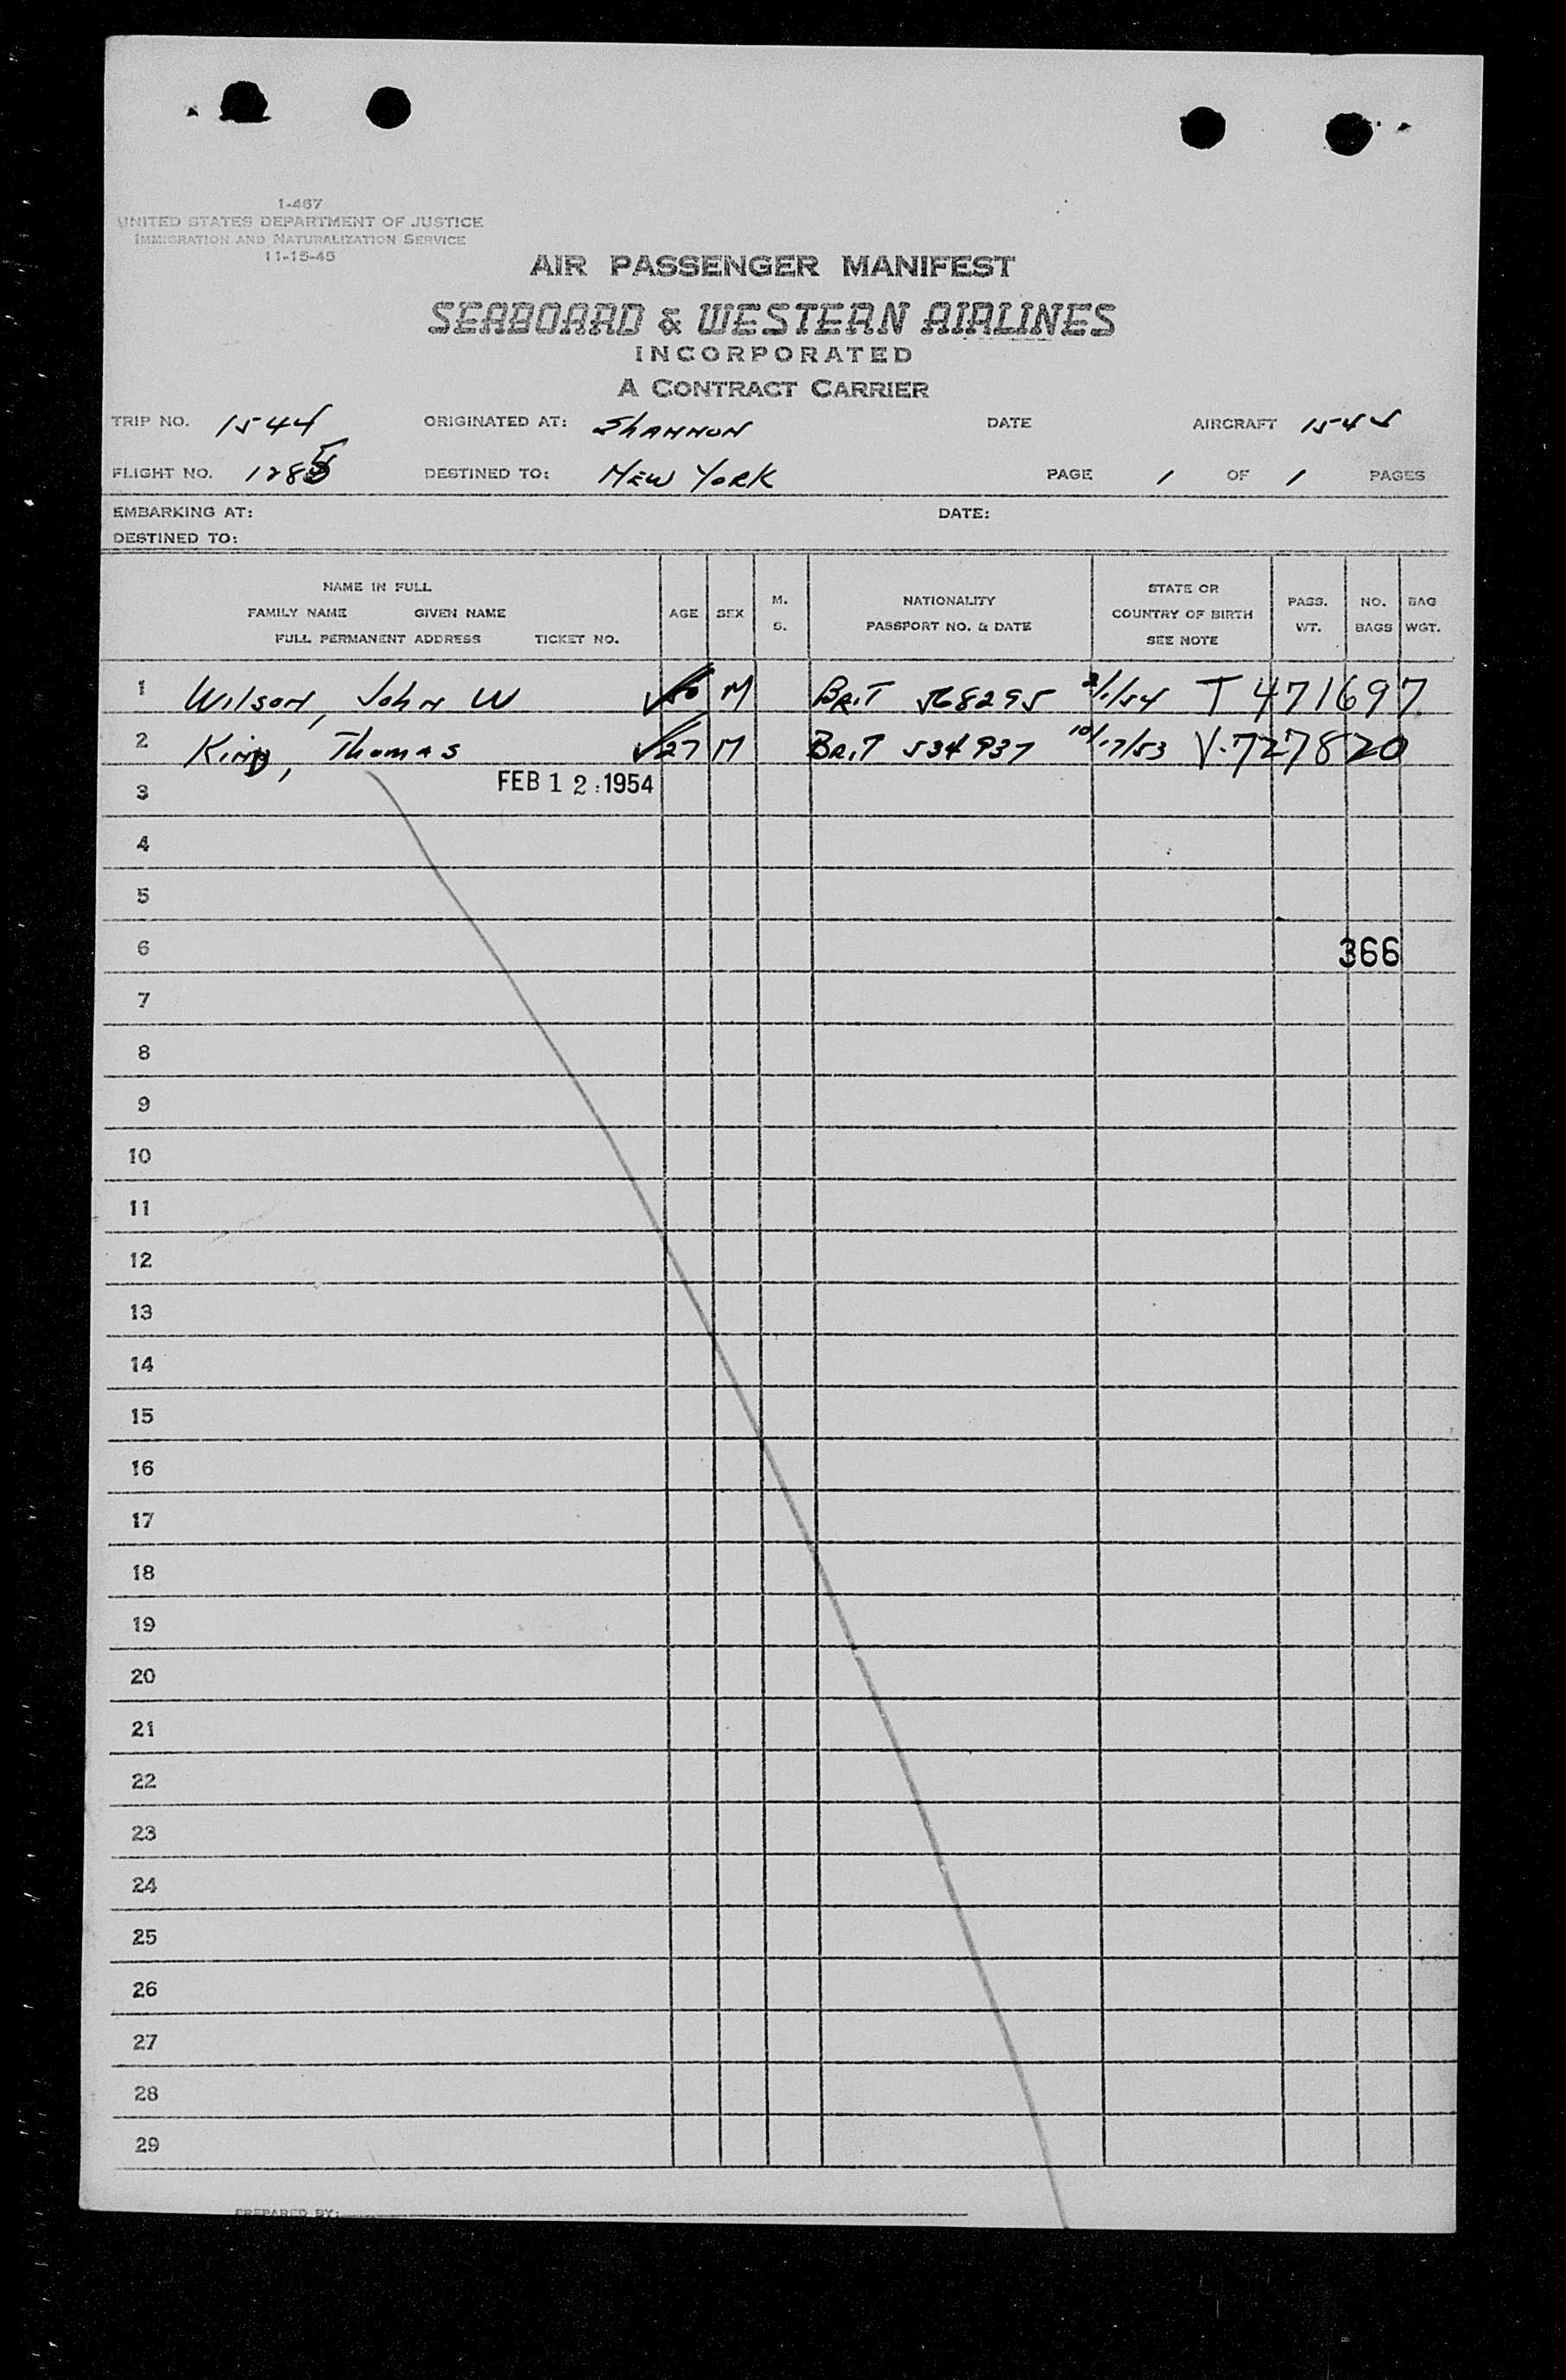 1-467
UNITED STATES DEPARTMENT OF JUSTICE
IMMIGRATION AND NATURALIZATION SERVICE
11-15-45
AIR PASSENGER MANIFEST
SEABOARD & WESTERN AIRLINES
INCORPORATED
A CONTRACT CARRIER
TRIP NO. 1544 ORIGINATED AT: SHANNON DATE AIRCRAFT 1544
FLIGHT NO. 1285 DESTINED TO: NEW YORK PAGE 1 OF 1 PAGES
EMBARKING AT: DATE:
DESTINED TO:
NAME IN FULL
FAMILY NAME GIVEN NAME
FULL PERMANENT ADDRESS TICKET NO.
AGE
SEX
M.
S.
NATIONALITY
PASSPORT NO. & DATE
STATE OR
COUNTRY OF BIRTH
SEE NOTE
PASS.
WT.
NO.
BAGS
BAG
WGT.
1 Wilson, John W M BRIT 568295 2/1/54 T 471697
2 King, Thomas 27 M BRIT 534937 10/17/53 V-727820
3 FEB 12 1954
4
5
6 366
7
8
9
10
11
12
13
14
15
16
17
18
19
20
21
22
23
24
25
26
27
28
29
PREPARED BY: